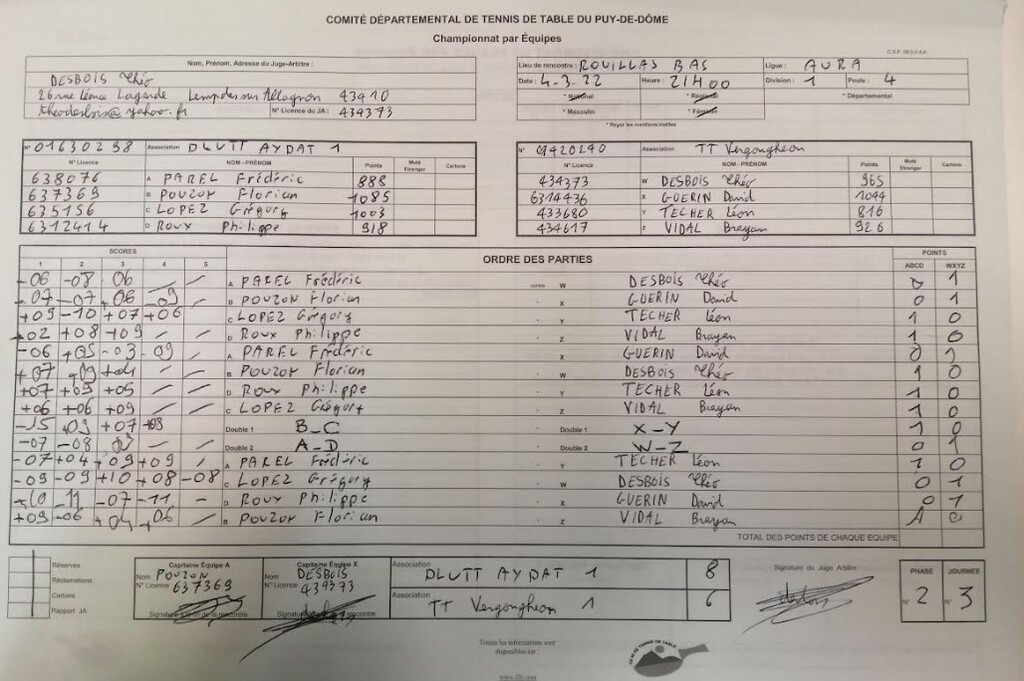 COMITÉ DÉPARTEMENTAL DE TENNIS DE TABLE DU PUY-DE-DÔME
Championnat par Équipes
Nom, Prénom, Adresse du Juge-Arbitre :
DESBOIS Théo
26 rue Léonce Lagarde Lempdes sur Allagnon 43410
theodesbois@yahoo.fr N° Licence du JA : 434373
Lieu de rencontre : ROUILLAS BAS Ligue : AURA
Date : 4.3.22 Heure : 21H00 Division : 1 Poule : 4
* National * Régional * Départemental
* Masculin * Féminin
* Rayer les mentions inutiles
N° 01630298 Association DLUTT AYDAT 1
N° Licence NOM - PRÉNOM Points Muté Etranger Cartons
638076 A PAREL Frédéric 888
637369 B POUZON Florian 1085
635156 C LOPEZ Grégory 1003
6312414 D ROUX Philippe 918
N° 01420240 Association TT Vergongheon
N° Licence NOM - PRÉNOM Points Muté Etranger Cartons
434373 W DESBOIS Théo 965
6314436 X GUERIN David 1044
433680 Y TECHER Léon 816
434617 Z VIDAL Brayan 926
SCORES ORDRE DES PARTIES POINTS
1 2 3 4 5 ABCD WXYZ
-06 -08 06 / / A PAREL Frédéric contre W DESBOIS Théo 0 1
-07 -07 +06 -09 / B POUZON Florian - X GUERIN David 0 1
+09 -10 +07 +06 C LOPEZ Grégory - Y TECHER Léon 1 0
+02 +08 +09 / / D ROUX Philippe - Z VIDAL Brayan 1 0
-06 +05 -03 -09 / A PAREL Frédéric - X GUERIN David 0 1
+07 +09 +04 / / B POUZON Florian - W DESBOIS Théo 1 0
+07 +09 +05 / / D ROUX Philippe - Y TECHER Léon 1 0
+06 +06 +09 / / C LOPEZ Grégory - Z VIDAL Brayan 1 0
-15 +09 +07 +08 Double 1 B-C Double 1 X-Y 1 0
-07 -08 07 / / Double 2 A-D Double 2 W-Z 0 1
-07 +04 +09 +09 / A PAREL Frédéric - Y TECHER Léon 1 0
-09 -09 +10 +08 -08 C LOPEZ Grégory - W DESBOIS Théo 0 1
-10 11 -07 -11 / D ROUX Philippe - X GUERIN David 0 1
+09 -06 +04 +06 / B POUZON Florian - Z VIDAL Brayan 1 0
TOTAL DES POINTS DE CHAQUE EQUIPE
Réserves
Réclamations
Cartons
Rapport JA
Capitaine Équipe A
Nom POUZON
N° Licence 637369
Capitaine Équipe X
Nom DESBOIS
N° Licence
Association DLUTT AYDAT 1 8
Association TT Vergongheon 1 6
Signature du Juge Arbitre
PHASE JOURNEE
N° 2 N° 3
Toutes les informations sont
disponibles sur :
www.fftt.com